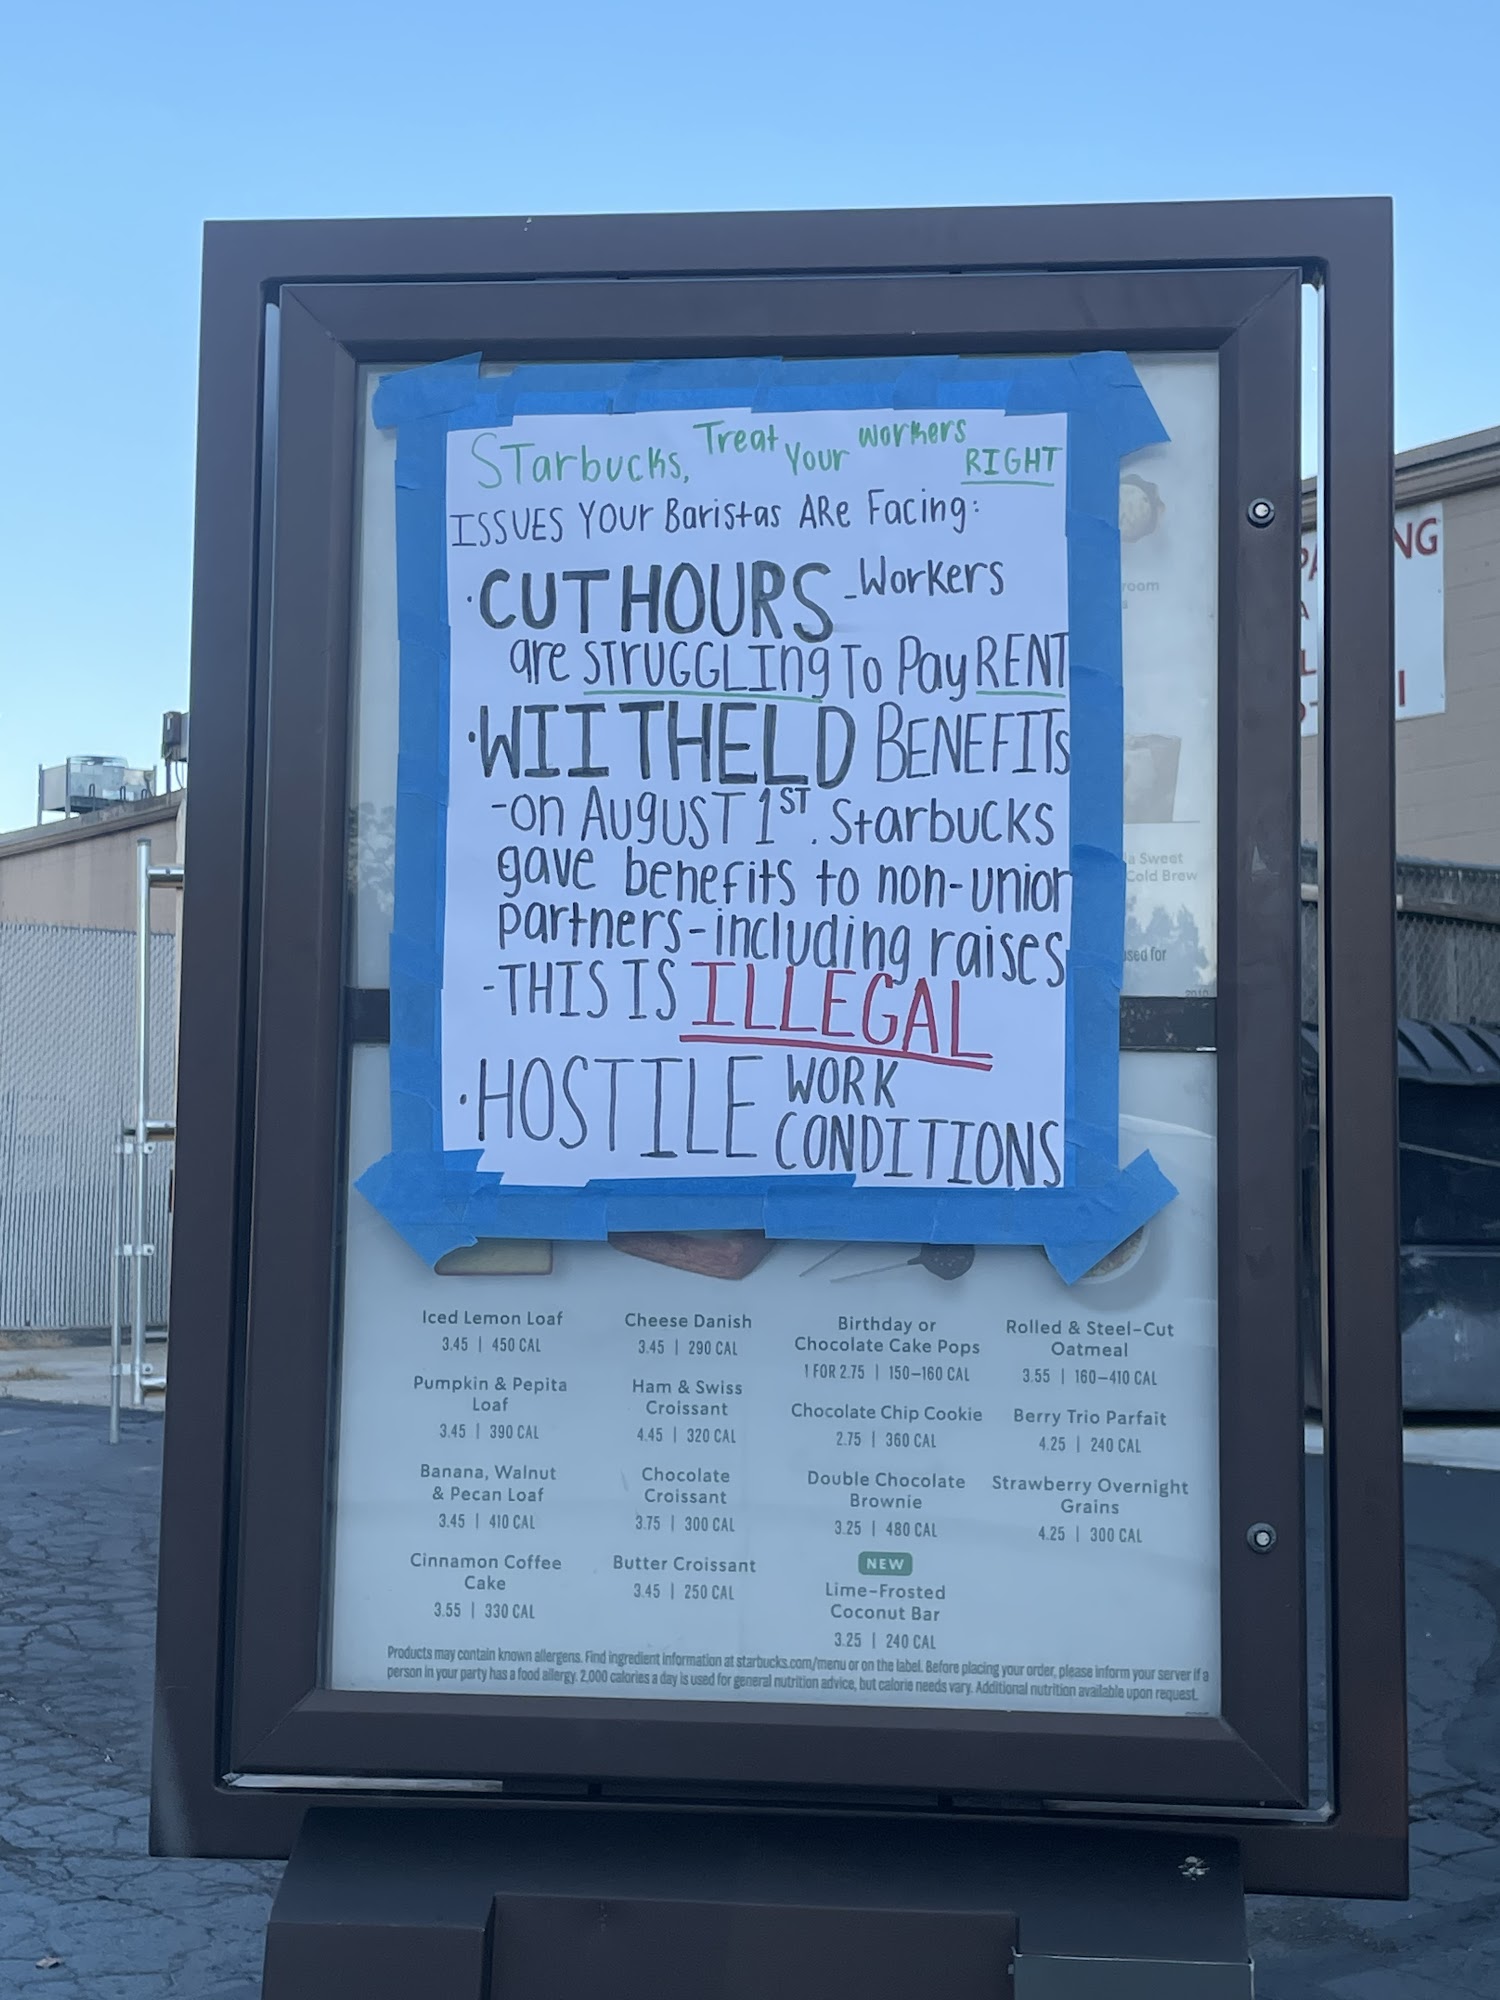 STarbucks, Treat Your workers RIGHT
ISSUES YOUr Baristas ARe Facing:
·CUT HOURS -Workers
are STrUGGLIng To Pay RENT
·WIITHELD BENEFITs
-on AUgUST 1ST. Starbucks
gave benefits to non-union
partners-including raises
-THIS IS ILLEGAL
·HOSTILE WORK
CONDITIONS
room
la Sweet
Cold Brew
used for
NG
A
L
I
Iced Lemon Loaf
3.45 | 450 CAL
Pumpkin & Pepita
Loaf
3.45 | 390 CAL
Banana, Walnut
& Pecan Loaf
3.45 | 410 CAL
Cinnamon Coffee
Cake
3.55 | 330 CAL
Cheese Danish
3.45 | 290 CAL
Ham & Swiss
Croissant
4.45 | 320 CAL
Chocolate
Croissant
3.75 | 300 CAL
Butter Croissant
3.45 | 250 CAL
Birthday or
Chocolate Cake Pops
1 FOR 2.75 | 150–160 CAL
Chocolate Chip Cookie
2.75 | 360 CAL
Double Chocolate
Brownie
3.25 | 480 CAL
NEW
Lime-Frosted
Coconut Bar
3.25 | 240 CAL
Rolled & Steel-Cut
Oatmeal
3.55 | 160–410 CAL
Berry Trio Parfait
4.25 | 240 CAL
Strawberry Overnight
Grains
4.25 | 300 CAL
Products may contain known allergens. Find ingredient information at starbucks.com/menu or on the label. Before placing your order, please inform your server if a
person in your party has a food allergy. 2,000 calories a day is used for general nutrition advice, but calorie needs vary. Additional nutrition available upon request.